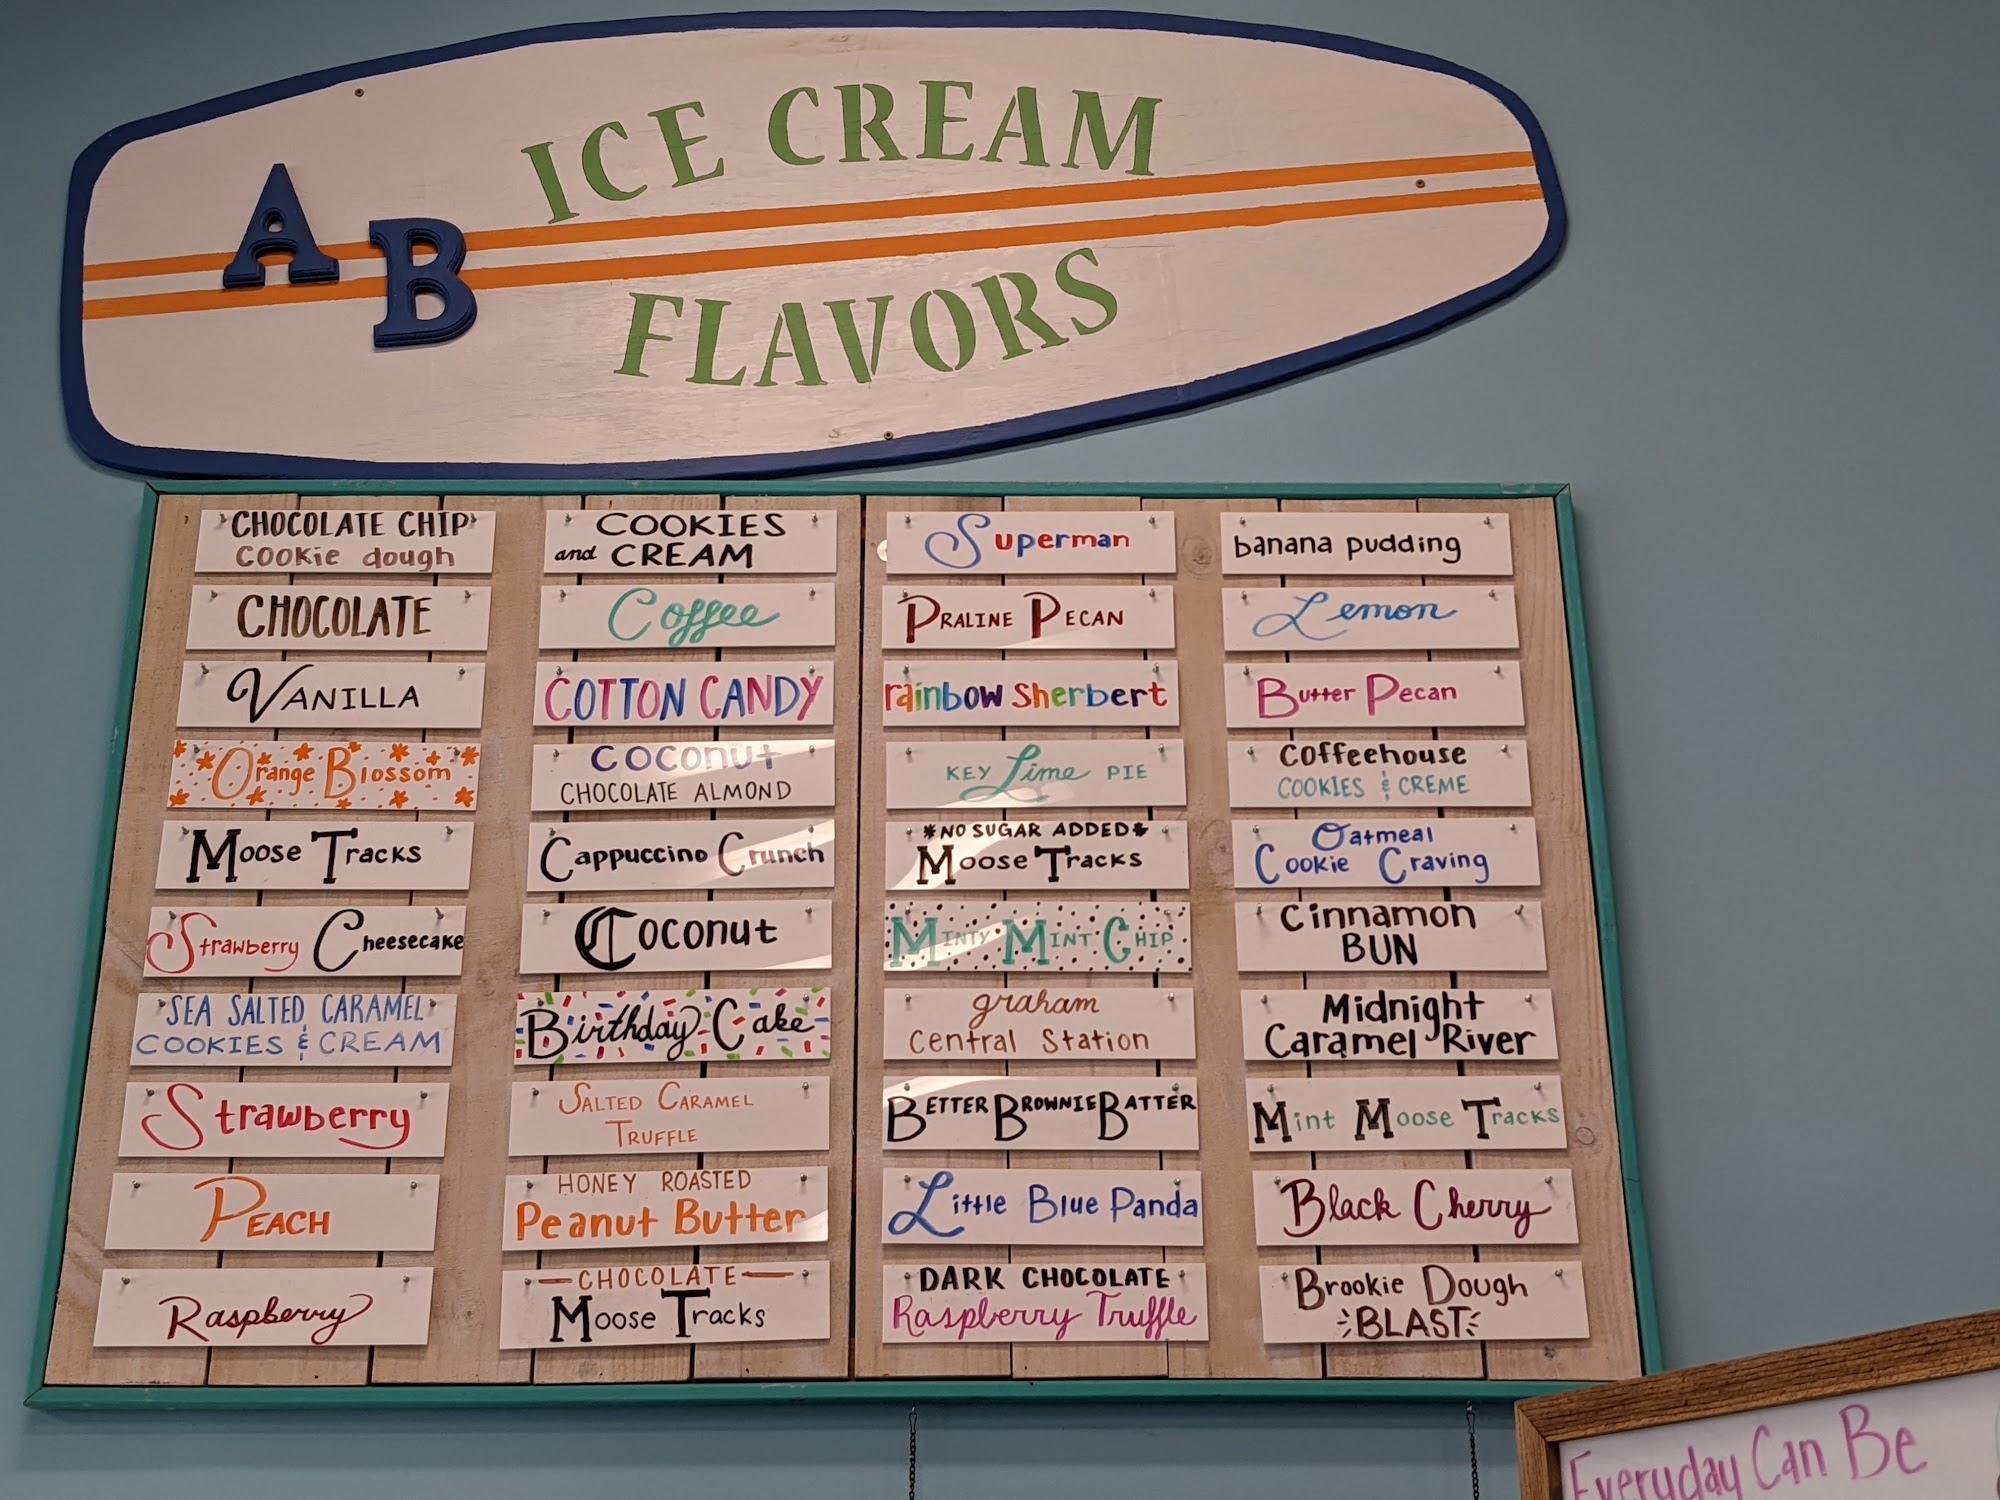 AB
ICE CREAM
FLAVORS
CHOCOLATE CHIP
cookie dough
CHOCOLATE
VANILLA
Orange Blossom
Moose Tracks
Strawberry Cheesecake
SEA SALTED CARAMEL
COOKIES & CREAM
Strawberry
PEACH
Raspberry
COOKIES
and CREAM
Coffee
COTTON CANDY
COCONUT
CHOCOLATE ALMOND
Cappuccino Crunch
Coconut
Birthday Cake
SALTED CARAMEL
TRUFFLE
HONEY ROASTED
Peanut Butter
CHOCOLATE
Moose Tracks
Superman
PRALINE PECAN
rainbow sherbert
KEY Lime PIE
*NO SUGAR ADDED*
Moose Tracks
MINTY MINT CHIP
graham
Central Station
BETTER BROWNIE BATTER
Little Blue Panda
DARK CHOCOLATE
Raspberry Truffle
banana pudding
Lemon
Butter Pecan
Coffeehouse
COOKIES & CREME
Oatmeal
Cookie Craving
Cinnamon
BUN
Midnight
Caramel River
Mint Moose Tracks
Black Cherry
Brookie Dough
BLAST
Everyday Can Be